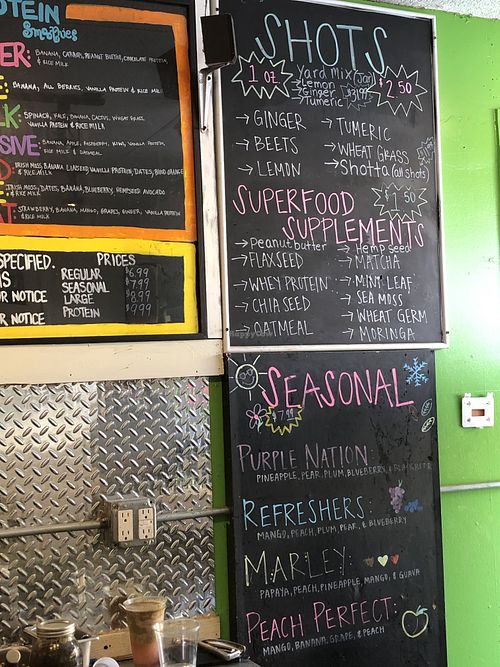 OTEIN
Smoothies
ER: BANANA, CARROTS, PEANUT BUTTER, CHOCOLATE PROTEIN
& RICE MILK
BANANA, ALL BERRIES, VANILLA PROTEIN & RICE MILK
LK: SPINACH, KALE, BANANA, CACTUS, WHEAT GRASS,
VANILLA PROTEIN & RICE MILK
SSIVE: BANANA, APPLE, RASPBERRY, VANILLA PROTEIN,
RICE MILK & OATMEAL
IRISH MOSS, BANANA, LINSEED, VANILLA PROTEIN, DATES,
& RICE MILK
IRISH MOSS, DATES, BANANA, BLUEBERRY, HEMPSEED, AVOCADO
& RICE MILK
T: STRAWBERRY, BANANA, MANGO, GRAPES, GINGER, VANILLA PROTEIN
& RICE MILK
SPECIFIED.
NOTICE
NOTICE
PRICES
REGULAR $6.99
SEASONAL $7.99
LARGE $8.99
PROTEIN $9.99
SHOTS
1 OZ
Yard Mix (Jar)
→Lemon
→Ginger
→Tumeric
$2.50
→ GINGER
→ BEETS
→ LEMON
→ TUMERIC
→ WHEAT GRASS
→ Shotta (all shots)
SUPERFOOD
SUPPLEMENTS
$1.50
→ Peanut butter
→ FLAXSEED
→ WHEY PROTEIN
→ CHIA SEED
→ OATMEAL
→ Hemp seed
→ MATCHA
→ MINT LEAF
→ SEA MOSS
→ WHEAT GERM
→ MORINGA
SEASONAL
$7.99
PURPLE NATION:
PINEAPPLE, PEAR, PLUM, BLUEBERRY &
REFRESHERS:
MANGO, PEACH, PLUM, PEAR, & BLUEBERRY
MARLEY:
PAPAYA, PEACH, PINEAPPLE, MANGO, & GUAVA
PEACH PERFECT:
MANGO, BANANA, GRAPE, & PEACH